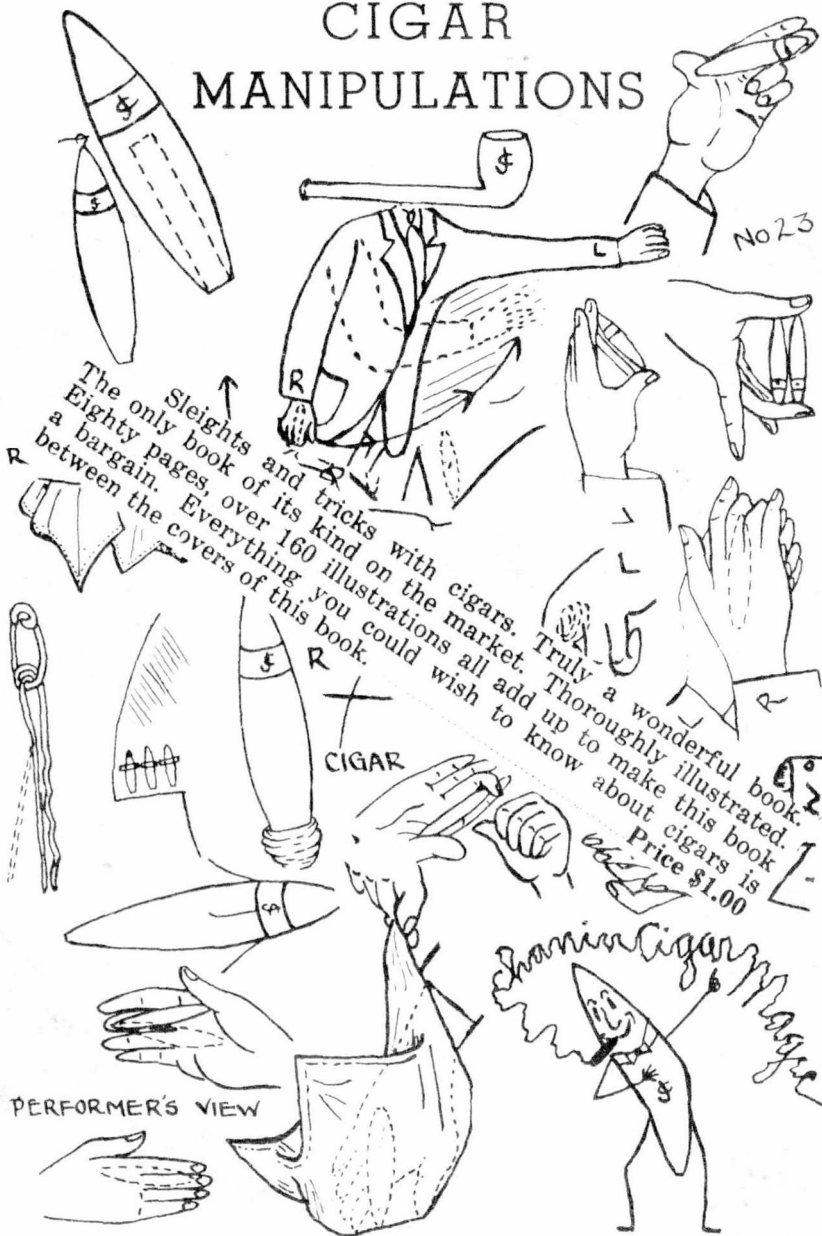 CIGAR
MANIPULATIONS
No 23
L
R
R
R
Sleights and tricks with cigars. Truly a wonderful book.
The only book of its kind on the market. Thoroughly illustrated.
Eighty pages, over 160 illustrations all add up to make this book
a bargain. Everything you could wish to know about cigars is
between the covers of this book.
Price $1.00
L
L
L
R
R
CIGAR
Shanin Cigar Magic
PERFORMER'S VIEW